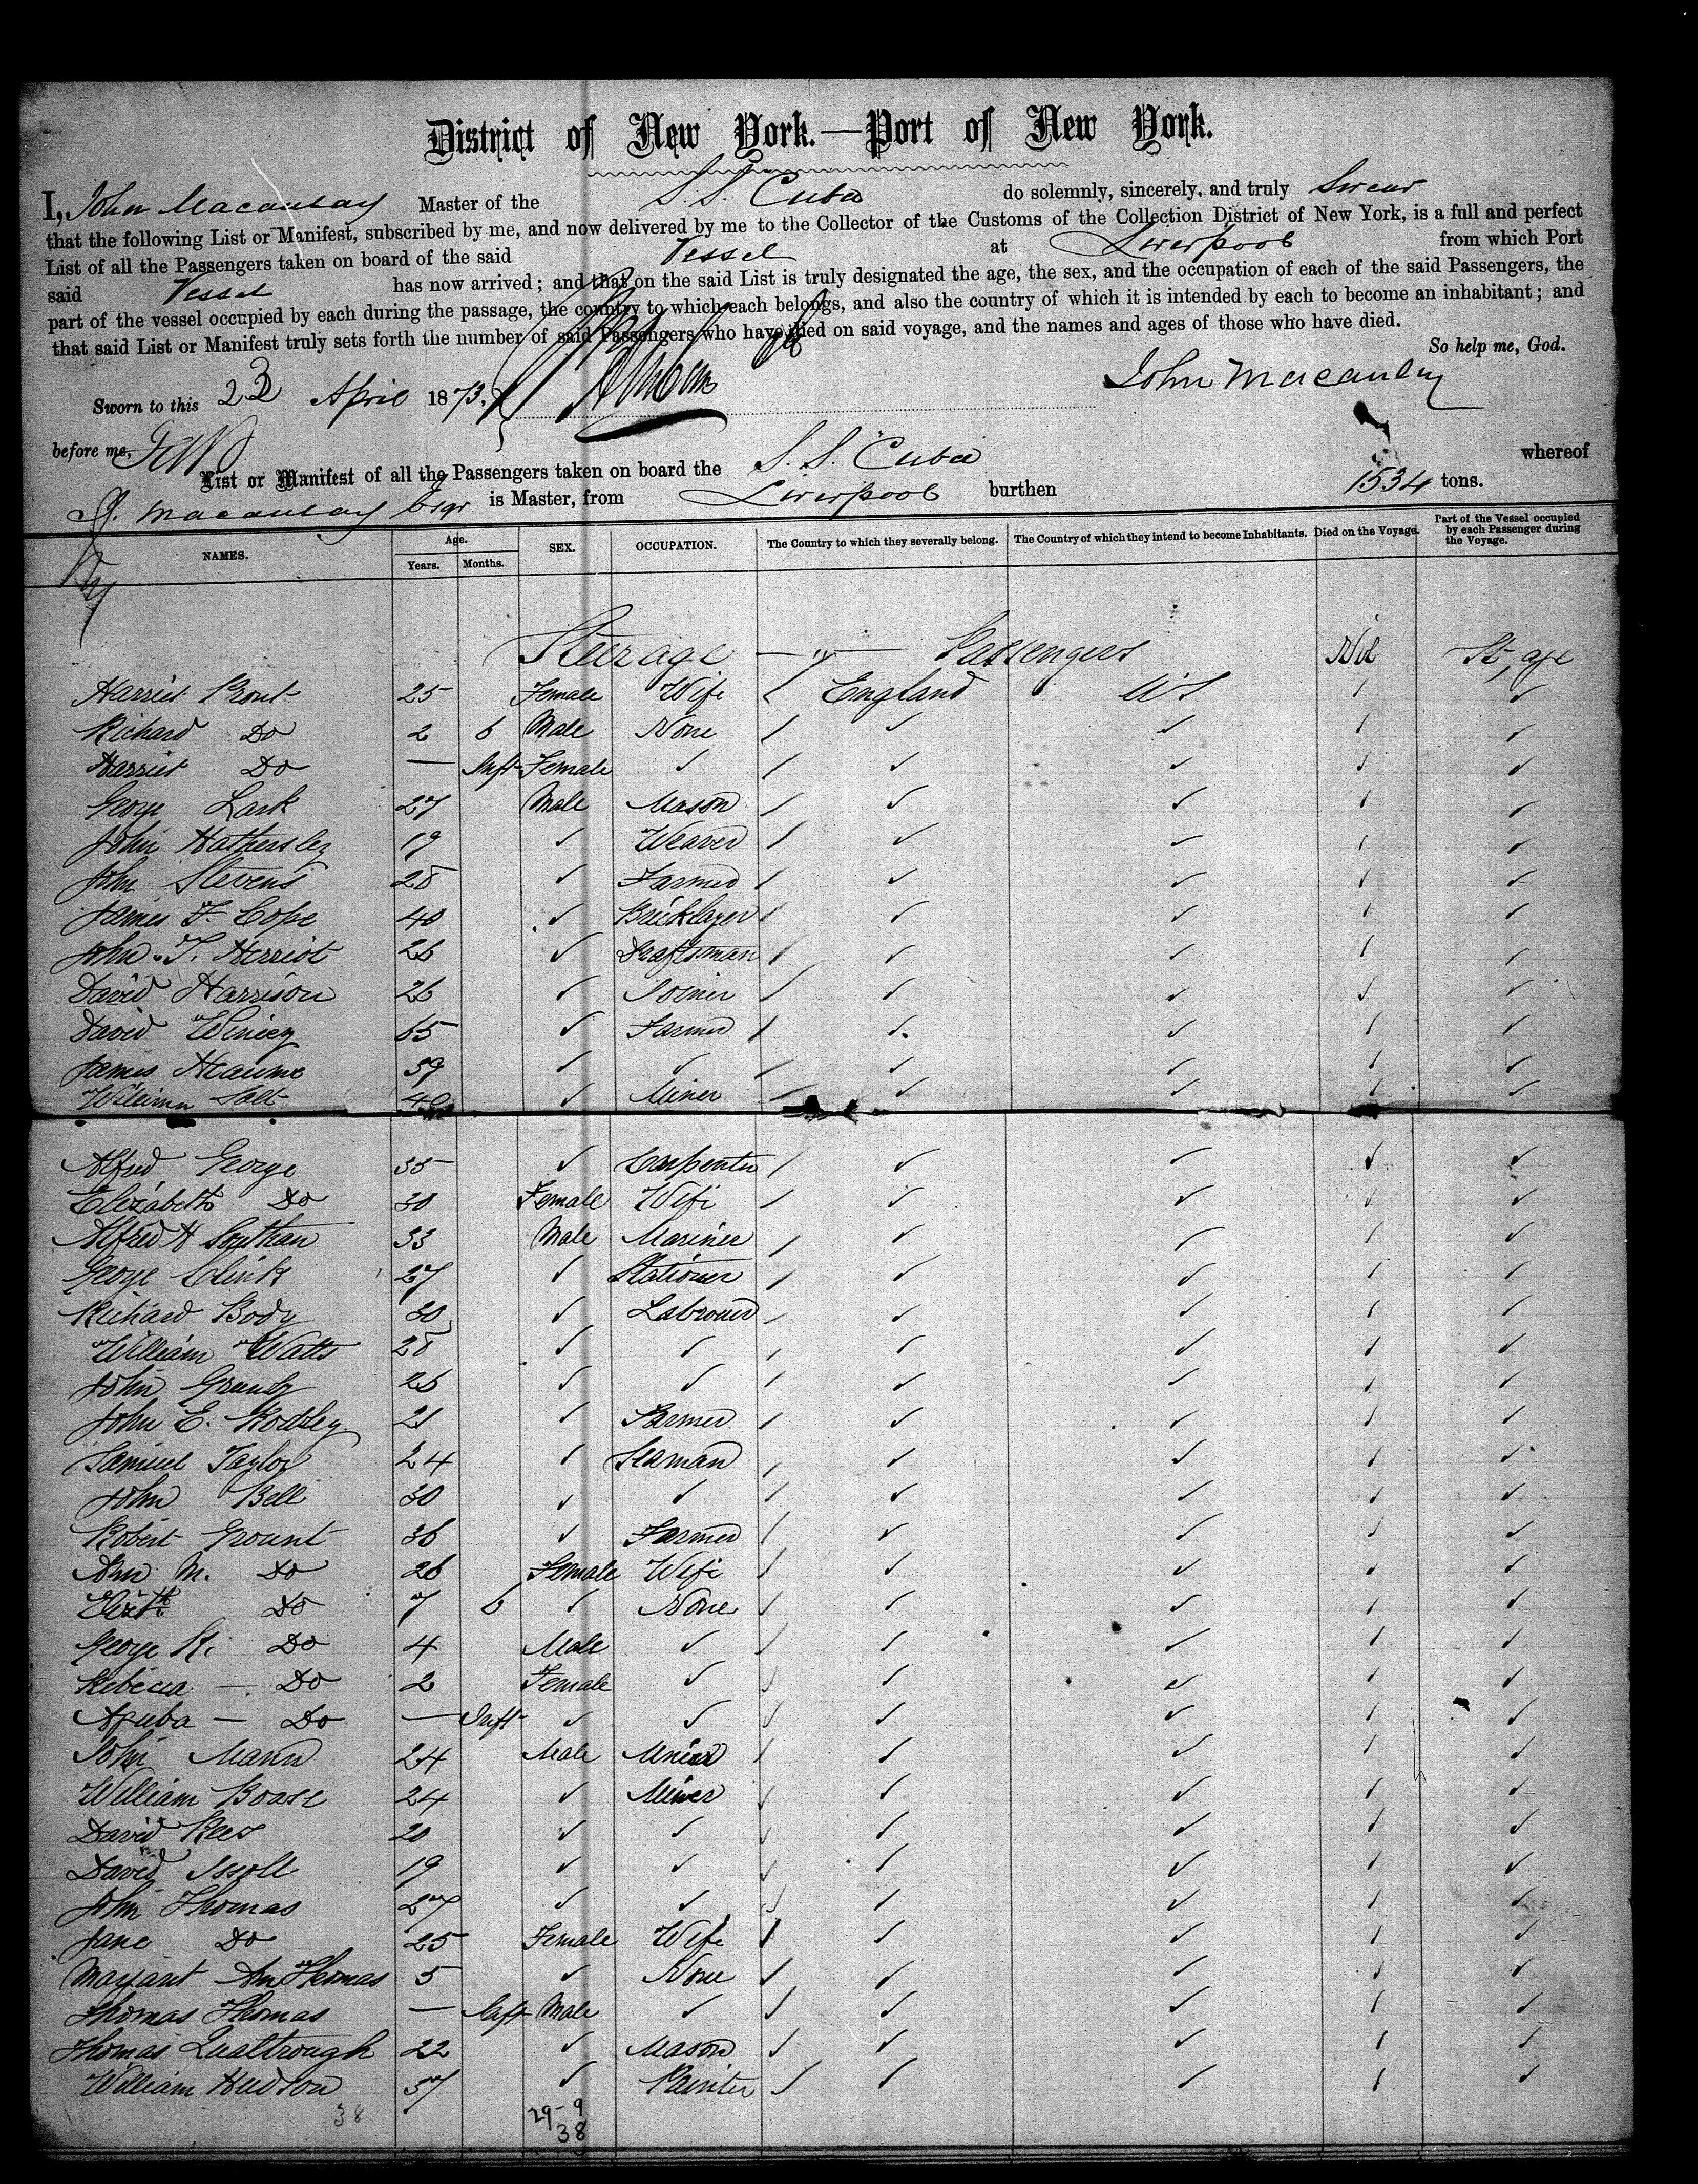 District of New York.—Port of New York.
I, John Macaulay Master of the S.S. Cuba do solemnly, sincerely, and truly Swear
that the following List or Manifest, subscribed by me, and now delivered by me to the Collector of the Customs of the Collection District of New York, is a full and perfect
List of all the Passengers taken on board of the said Vessel at Liverpool from which Port
said Vessel has now arrived; and that on the said List is truly designated the age, the sex, and the occupation of each of the said Passengers, the
part of the vessel occupied by each during the passage, the country to which each belongs, and also the country of which it is intended by each to become an inhabitant; and
that said List or Manifest truly sets forth the number of said Passengers who have died on said voyage, and the names and ages of those who have died.
So help me, God.
Sworn to this 23 April 1873. John Macaulay
before me,
List or Manifest of all the Passengers taken on board the S.S. Cuba whereof
J. Macaulay Esqr is Master, from Liverpool burthen 1534 tons.
NAMES. Age. Years. Months. SEX. OCCUPATION. The Country to which they severally belong. The Country of which they intend to become Inhabitants. Died on the Voyage. Part of the Vessel occupied by each Passenger during the Voyage.
Steerage — " — Passengers Nil St,age
Harriet Prout 25 Female Wife England US
Richard Do 2 6 Male None
Harriet Do — Inft Female
George Lark 27 Male Mason
John Hathersley 19 Weaver
John Stevens 28 Farmer
James F. Cope 40 Bricklayer
John T. Herriot 26 Draftsman
David Harrison 26 Joiner
David 65 Farmer
James 39
William Salt 40 Miner
Alfred George 35 Carpenter
Elizabeth Do 30 Female Wife
Alfred H Southan 33 Male Mariner
George Clink 27 Stationer
Richard Body 30 Labrourer
William Watts 28
John Grundy 26
John E. Rodley 21 Farmer
Samuel Taylor 24 Seaman
John Bell 30
Robert Grount 36 Farmer
Ann M. Do 26 Female Wife
Elizth Do 7 6 None
George R. Do 4 Male
Rebecca — Do 2 Female
— Do — Inft
John Mann 24 Male Miner
William Boase 24 Miner
David Rees 20
David 19
John Thomas 27
Jane Do 25 Female Wife
Margaret Ann Thomas 5 None
Thomas Thomas — Inft Male
Thomas Qualtrough 22 Mason
William Hudson 37 Painter
38 29-9
38